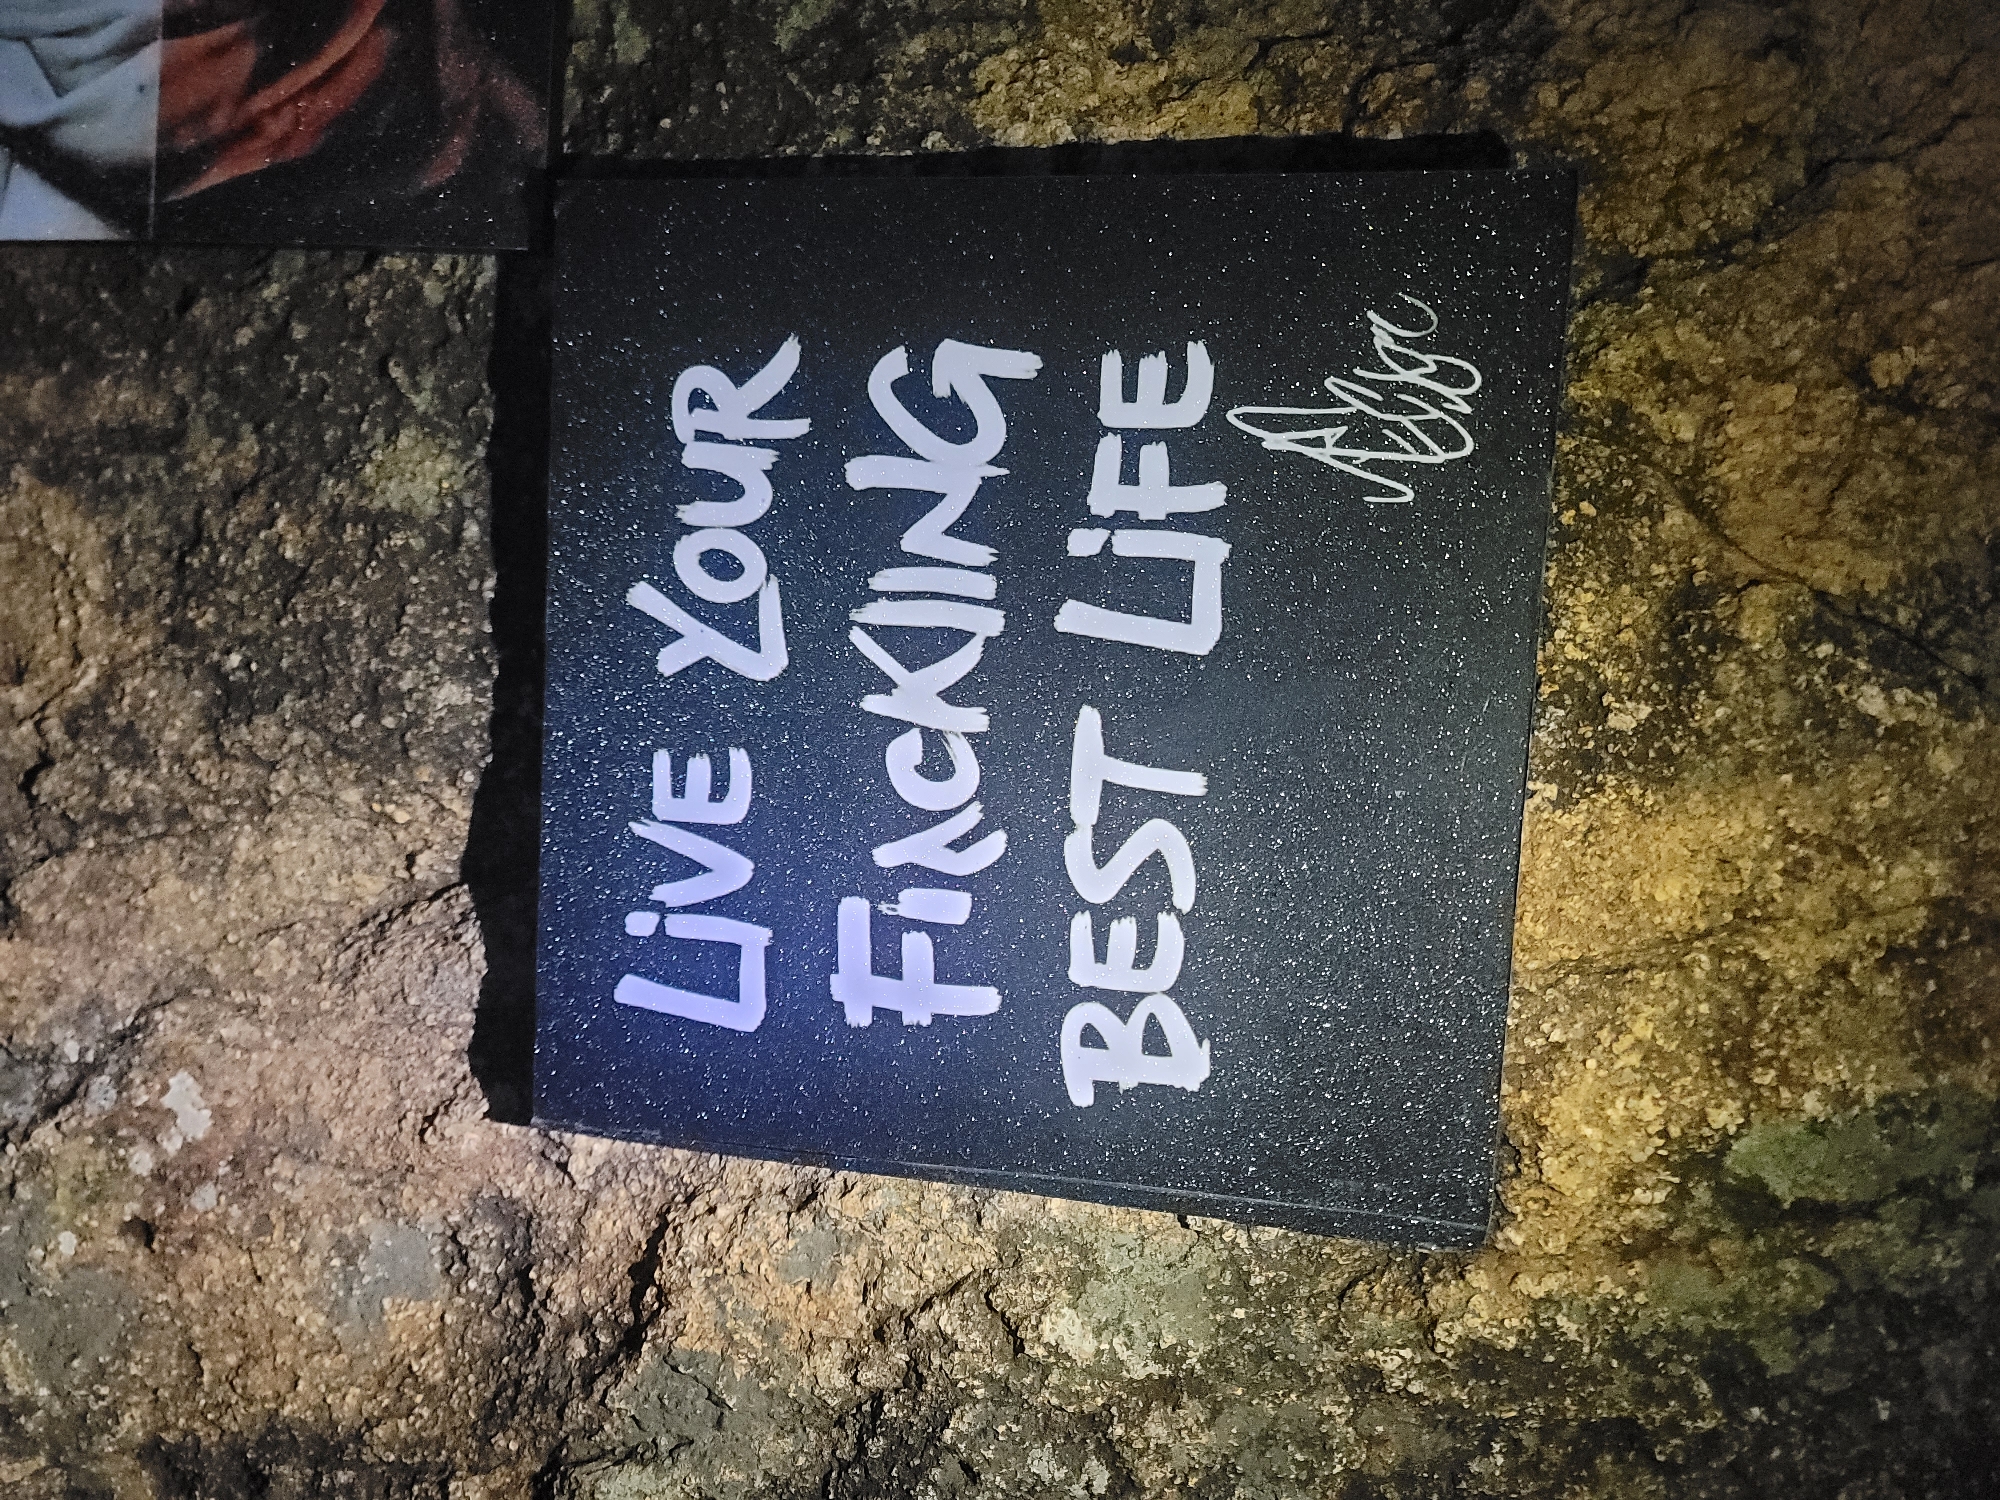 LiVE YOUR
FUCKING
BEST LiFE